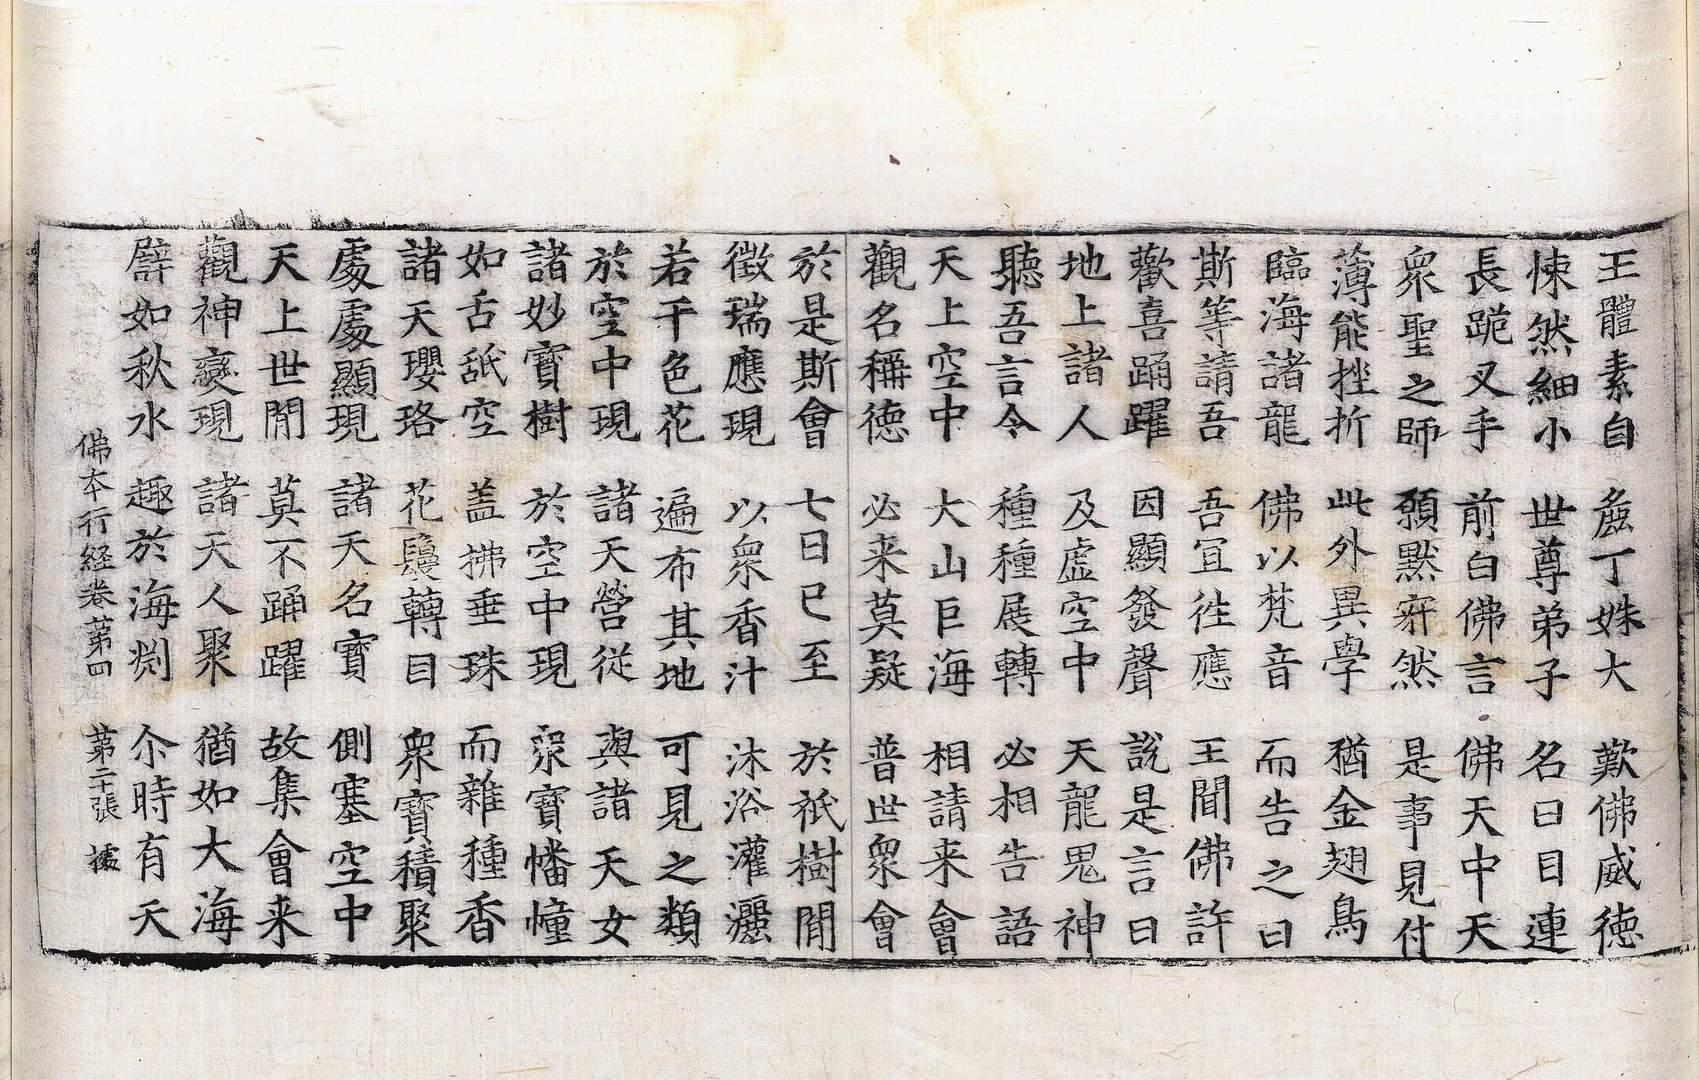 王體素自麁丁姝大歎佛威德
悚然細小世尊弟子名曰目連
長跪叉手前白佛言佛天中天
衆聖之師願默寂然是事見付
薄能挫折此外異學猶金翅鳥
臨海諸龍佛以梵音而告之曰
斯等請吾吾宜往應王聞佛許
歡喜踊躍因顯發聲說是言曰
地上諸人及虛空中天龍鬼神
聽吾言令種種展轉必相告語
天上空中大山巨海相請来會
觀名稱德必来莫疑普世衆會
於是斯會七日已至於祇樹閒
徵瑞應現以衆香汁沐浴灌灑
若干色花遍布其地可見之類
於空中現諸天營從與諸天女
諸妙寶樹於空中現衆寶幡幢
如舌舐空盖拂垂珠而雜種香
諸天瓔珞花鬘轉目衆寶積聚
處處顯現諸天名寶側塞空中
天上世閒莫不踊躍故集會来
觀神變現諸天人聚猶如大海
譬如秋水趣於海渕尒時有天
佛本行経卷苐四 苐二十張 㩀